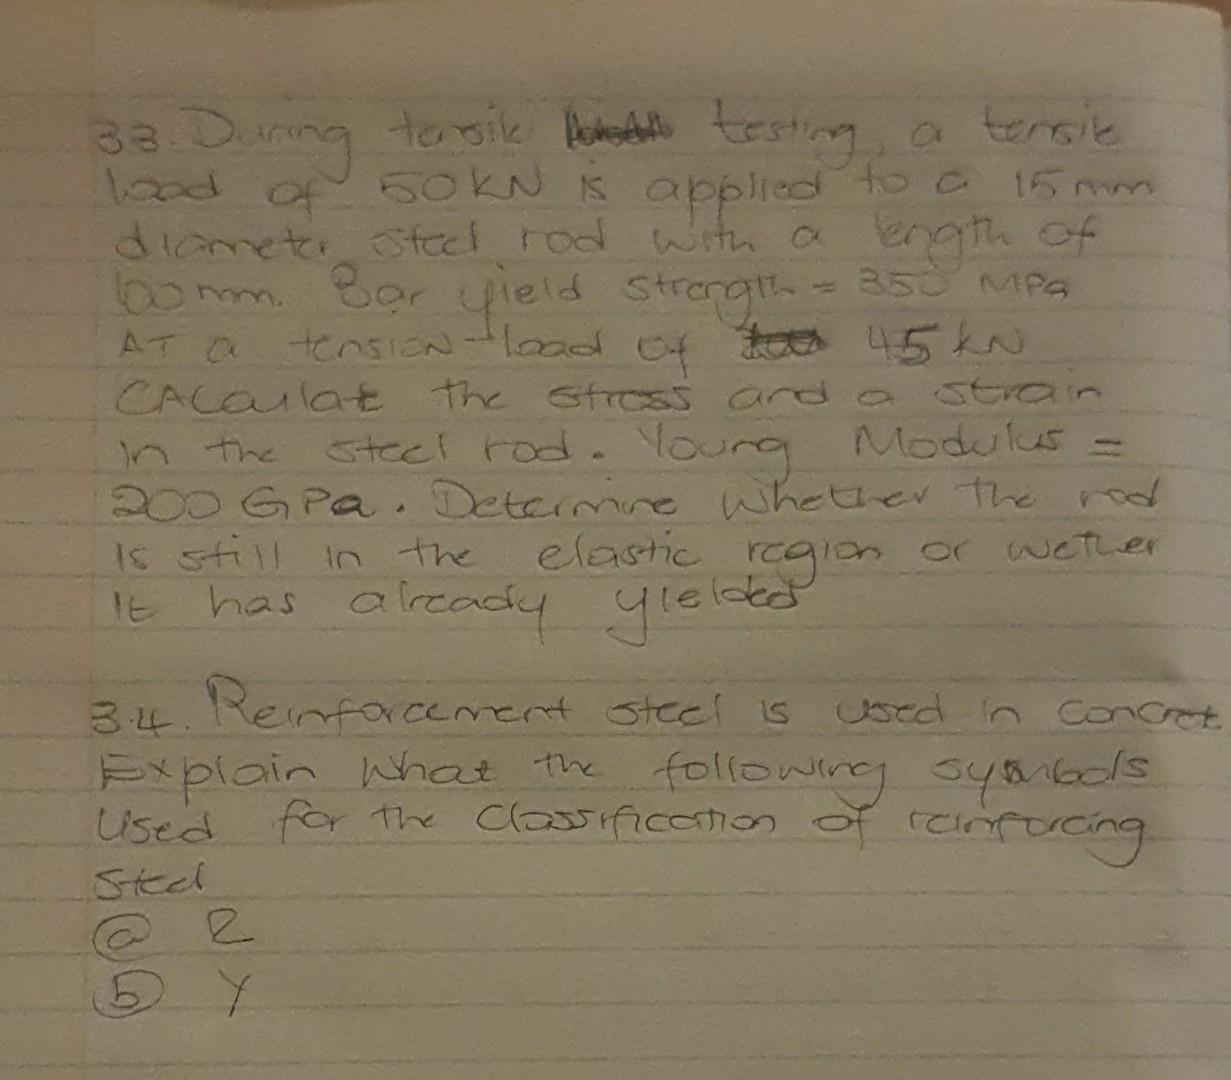 33. During tensile testing, a tensile
load of 50KN is applied to a 15mm
diameter steel rod with a length of
100mm. Bar yield strength = 350 MPa
AT a tension load of 45 kN
CALCULATE the stress and a strain
in the steel rod. Young Modulus =
200 GPa. Determine whether the rod
is still in the elastic region or wether
it has already yielded
3.4. Reinforcement steel is used in concret
Explain what the following symbols
used for the classification of reinforcing
steel
(a) R
(b) Y